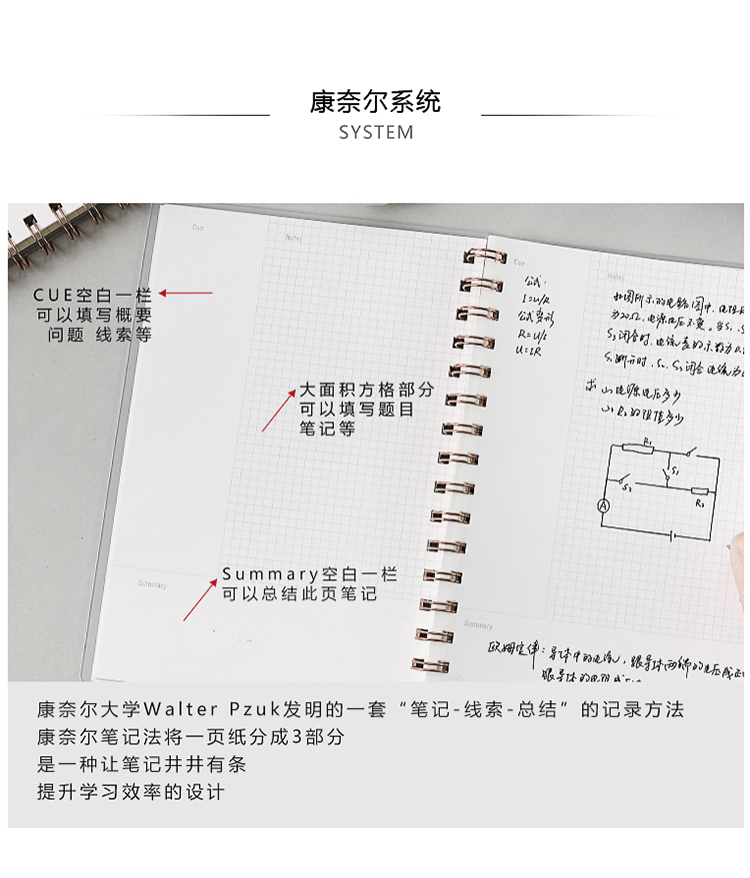 康奈尔系统
SYSTEM
Cue
Notes
CUE空白一栏
可以填写概要
问题 线索等
大面积方格部分
可以填写题目
笔记等
Summary空白一栏
可以总结此页笔记
Summary
Cue
公式:
I=U/R
公式变形
R=U/I
U=IR
Notes
如图所示的电路图中,电阻R
为20Ω,电源电压不变。当S₁
S₃闭合时,电流表的示数为0.
求
R₁
S₁
S₂
A
R₂
Summary
欧姆定律:导体中的电流,跟导体两端的电压成正
跟导体的电阻成
康奈尔大学Walter Pzuk发明的一套“笔记-线索-总结”的记录方法
康奈尔笔记法将一页纸分成3部分
是一种让笔记井井有条
提升学习效率的设计